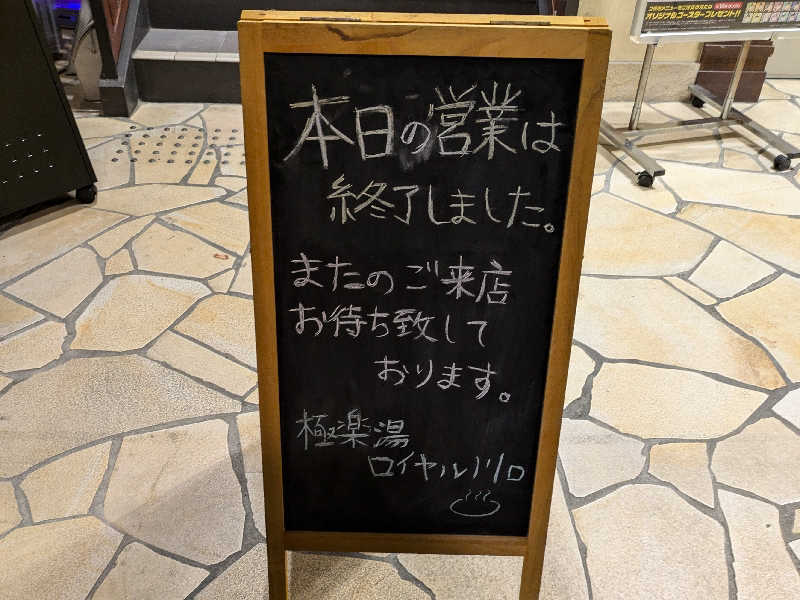 本日の営業は
終了しました。
またのご来店
お待ち致して
おります。
極楽湯
ロイヤル川口
オリジナルコースタープレゼント!!